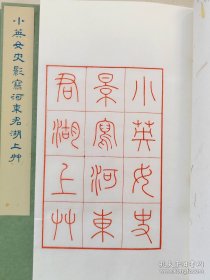 小英女史
景寫河東
君湖上艸
小英女史影寫河東君湖上艸